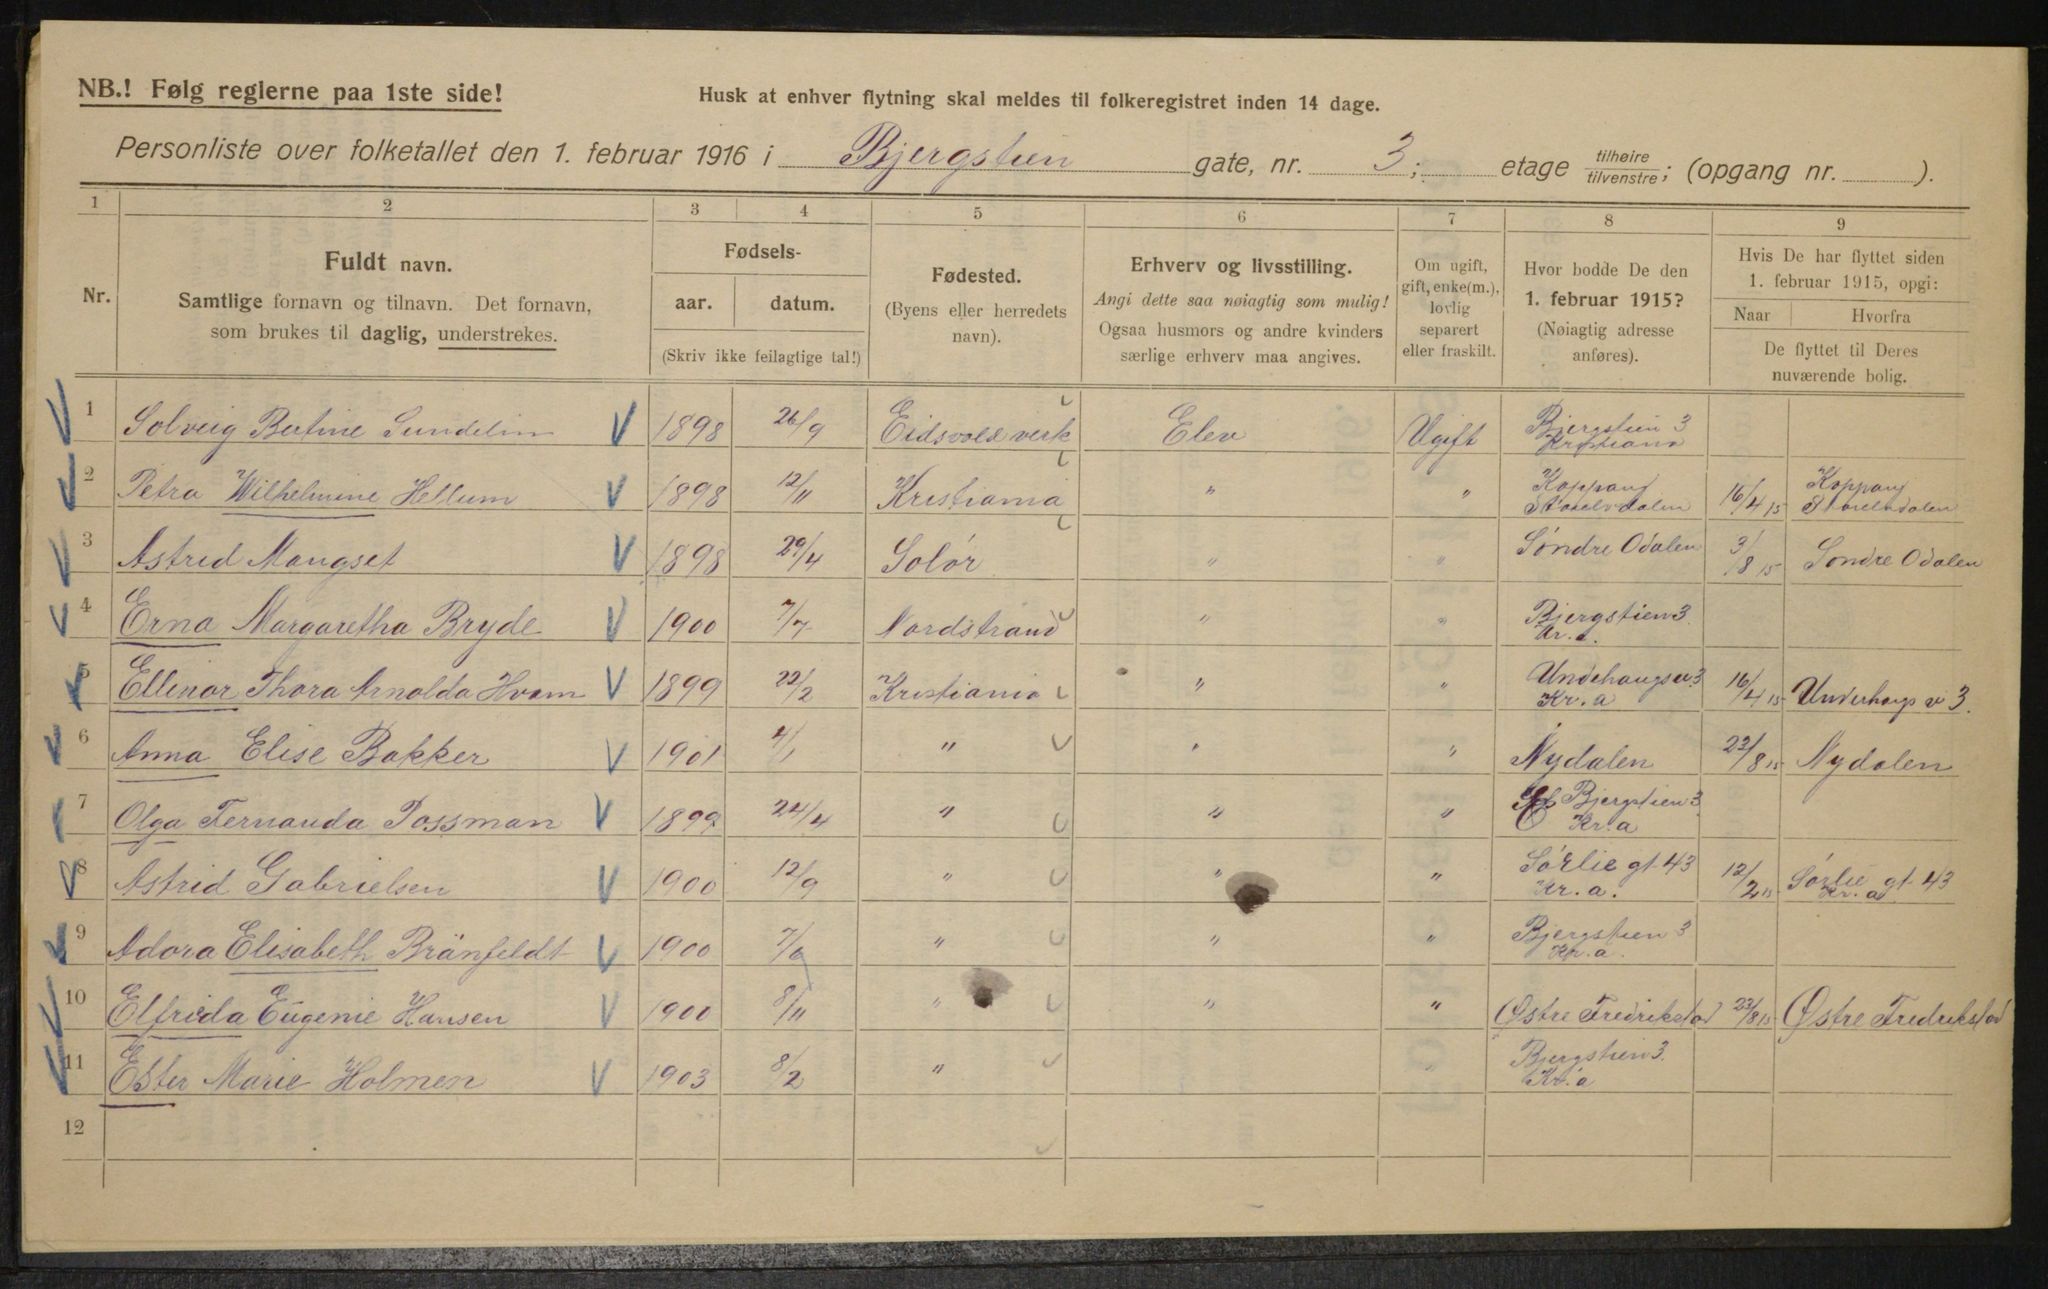 NB.! Følg reglerne paa 1ste side!
Husk at enhver flytning skal meldes til folkeregistret inden 14 dage.
Personliste over folketallet den 1. februar 1916 i Bjergstien gate, nr. 3; etage tilhøire/tilvenstre; (opgang nr. ).
1 2 3 4 5 6 7 8 9
Nr.
Fuldt navn.
Samtlige fornavn og tilnavn. Det fornavn,
som brukes til daglig, understrekes.
Fødsels-
aar. datum.
(Skriv ikke feilagtige tal!)
Fødested.
(Byens eller herredets
navn).
Erhverv og livsstilling.
Angi dette saa nøiagtig som mulig!
Ogsaa husmors og andre kvinders
særlige erhverv maa angives.
Om ugift,
gift, enke(m.),
lovlig
separert
eller fraskilt.
Hvor bodde De den
1. februar 1915?
(Nøiagtig adresse
anføres).
Hvis De har flyttet siden
1. februar 1915, opgi:
Naar Hvorfra
De flyttet til Deres
nuværende bolig.
1 Solveig Bertine Sundelin 1898 26/9 Eidsvold verk Elev Ugift Bjergstien 3
Kristiania
2 Petra Wilhelmine Hellum 1898 12/11 Kristiania " " Koppang
Storelvdalen 16/4 15 Koppang
Storelvdalen
3 Astrid Mangset 1898 29/4 Solör " " Söndre Odalen 3/8 15 Söndre Odalen
4 Erna Margaretha Bryde 1900 7/7 Nordstrand " " Bjergstien 3.
Kr. a.
5 Ellinor Thora Arnolda Hvam 1899 22/2 Kristiania " " Undehaugsv. 3
Kr. a 16/4 15 Underhaugs v 3.
6 Anna Elise Bakker 1901 4/1 " " " Nydalen 23/8 15 Nydalen
7 Olga Fernanda Possman 1899 24/4 " " " Bjergstien 3
Kr. a
8 Astrid Gabrielsen 1900 12/9 " " " Sörlie gt 43
Kr. a. 12/2 15 Sörlie gt 43
Kr. a
9 Adora Elisabeth Bränfeldt 1900 7/6 " " " Bjergstien 3
Kr. a.
10 Elfrida Eugenie Hansen 1900 8/11 " " " Østre Fredrikstad 23/8 15 Østre Fredrikstad
11 Ester Marie Holmen 1903 8/2 " Bjergstien 3.
Kr. a
12